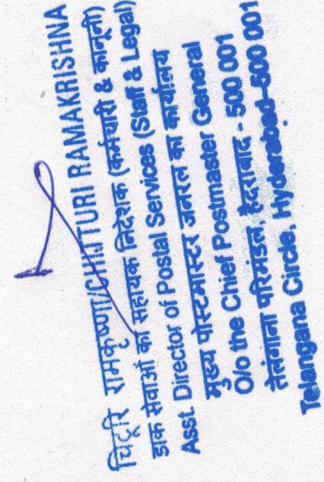 चिट्टूरि रामकृष्णा/CHITTURI RAMAKRISHNA
डाक सेवाओं का सहायक निदेशक (कर्मचारी & कानूनी)
Asst. Director of Postal Services (Staff & Legal)
मुख्य पोस्टमास्टर जनरल का कार्यालय
O/o the Chief Postmaster General
तेलंगाना परिमंडल, हैदराबाद - 500 001
Telangana Circle, Hyderabad-500 001